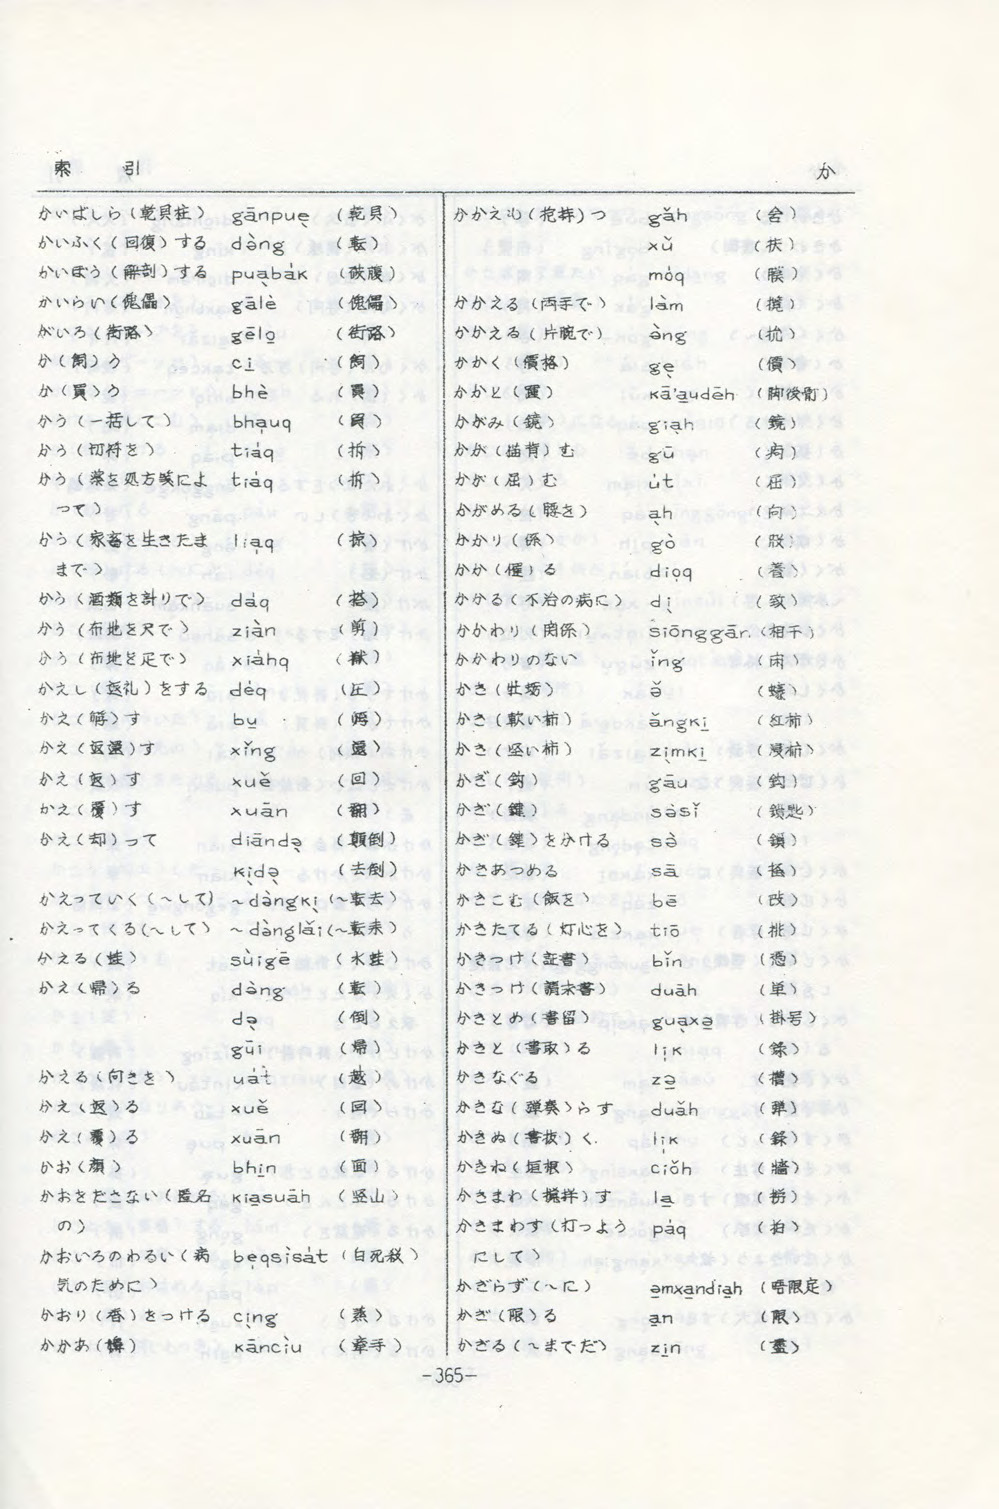 索 引 か
かいばしら(乾貝柱) gānpuẹ (乾貝)
かいふく(回復)する dèng (転)
かいぼう(解剖)する puạbák (破腹)
かいらい(傀儡) gālè (傀儡)
がいろ(街路) gēlo̠ (街路)
か(飼)う ci̠ (飼)
か(買)う bhè (買)
かう(一括して) bhạuq (貿)
かう(切符を) tiáq (拆)
かう(薬を処方箋によ tiáq (拆)
って)
かう(家畜を生きたま liạq (掠)
まで)
かう(酒類を計りで) dáq (搭)
かう(布地を尺で) ziàn (剪)
かう(布地を疋で) xiáhq
かえし(返礼)をする déq (圧)
かえ(孵)す bu̠
かえ(返還)す xǐng (還)
かえ(返)す xuě (回)
かえ(覆)す xuān (翻)
かえ(却)って diāndạ (顛倒)
kịdạ (去倒)
かえっていく(〜して) 〜dàngkị (〜転去)
かえってくる(〜して) 〜dànglǎi (〜転来)
かえる(蛙) sùigē (水蛙)
かえ(帰)る dèng (転)
dạ (倒)
gūi (帰)
かえる(向きを) uát (越)
かえ(返)る xuě (回)
かえ(覆)る xuān (翻)
かお(顔) bhi̠n (面)
かおをださない(匿名 kiạsuāh (竪山)
の)
かおいろのわるい(病 bẹqsìsát (白死殺)
気のために)
かおり(香)をつける cịng (蒸)
かかあ(嬶) kāncìu (牽手)
かかえ(抱持)つ gǎh
xǔ (扶)
móq (膜)
かかえる(両手で) làm
かかえる(片腕で) àng
かかく(價格) gẹ (價)
かかと(踵) kā'a̠udēh
かがみ(鏡) giạh (鏡)
かが(描背)む gū (痀)
かが(屈)む út (屈)
かがめる(腰を) ạh (向)
かかり(係) gò
かか(罹)る dioq (着)
かかる(不治の病に) dị (致)
かかわり(関係) siōnggār. (相干)
かかわりのない ǐng (闲)
かき(牡蛎) ě (蠔)
かき(軟い柿) ǎngki̠ (紅柿)
かき(堅い柿) zịmki̠ (浸柿)
かぎ(鈎) gāu (鈎)
かぎ(鍵) sèsǐ (鎖匙)
かぎ(鍵)を分ける sè (鎖)
かきあつめる sā
かきこむ(飯を) bē
かきたてる(灯心を) tiō (挑)
かきつけ(証書) bǐn (憑)
かきつけ(請求書) duāh (単)
かきとめ(書留) guạxə̠ (掛号)
かきと(書取)る li̍k (録)
かきなぐる zə̠
かきな(弾奏)らす duǎh (弾)
かきぬ(書抜)く. li̍k (録)
かきね(垣根) ciǒh (牆)
かきまわ(攪拌)す la̠
かきまわす(打つよう páq (拍)
にして)
かぎらず(〜に) ạmxa̠ndiạh (唔限定)
かぎ(限)る a̠n (限)
かぎる(〜までだ) zi̠n (盡)
-365-